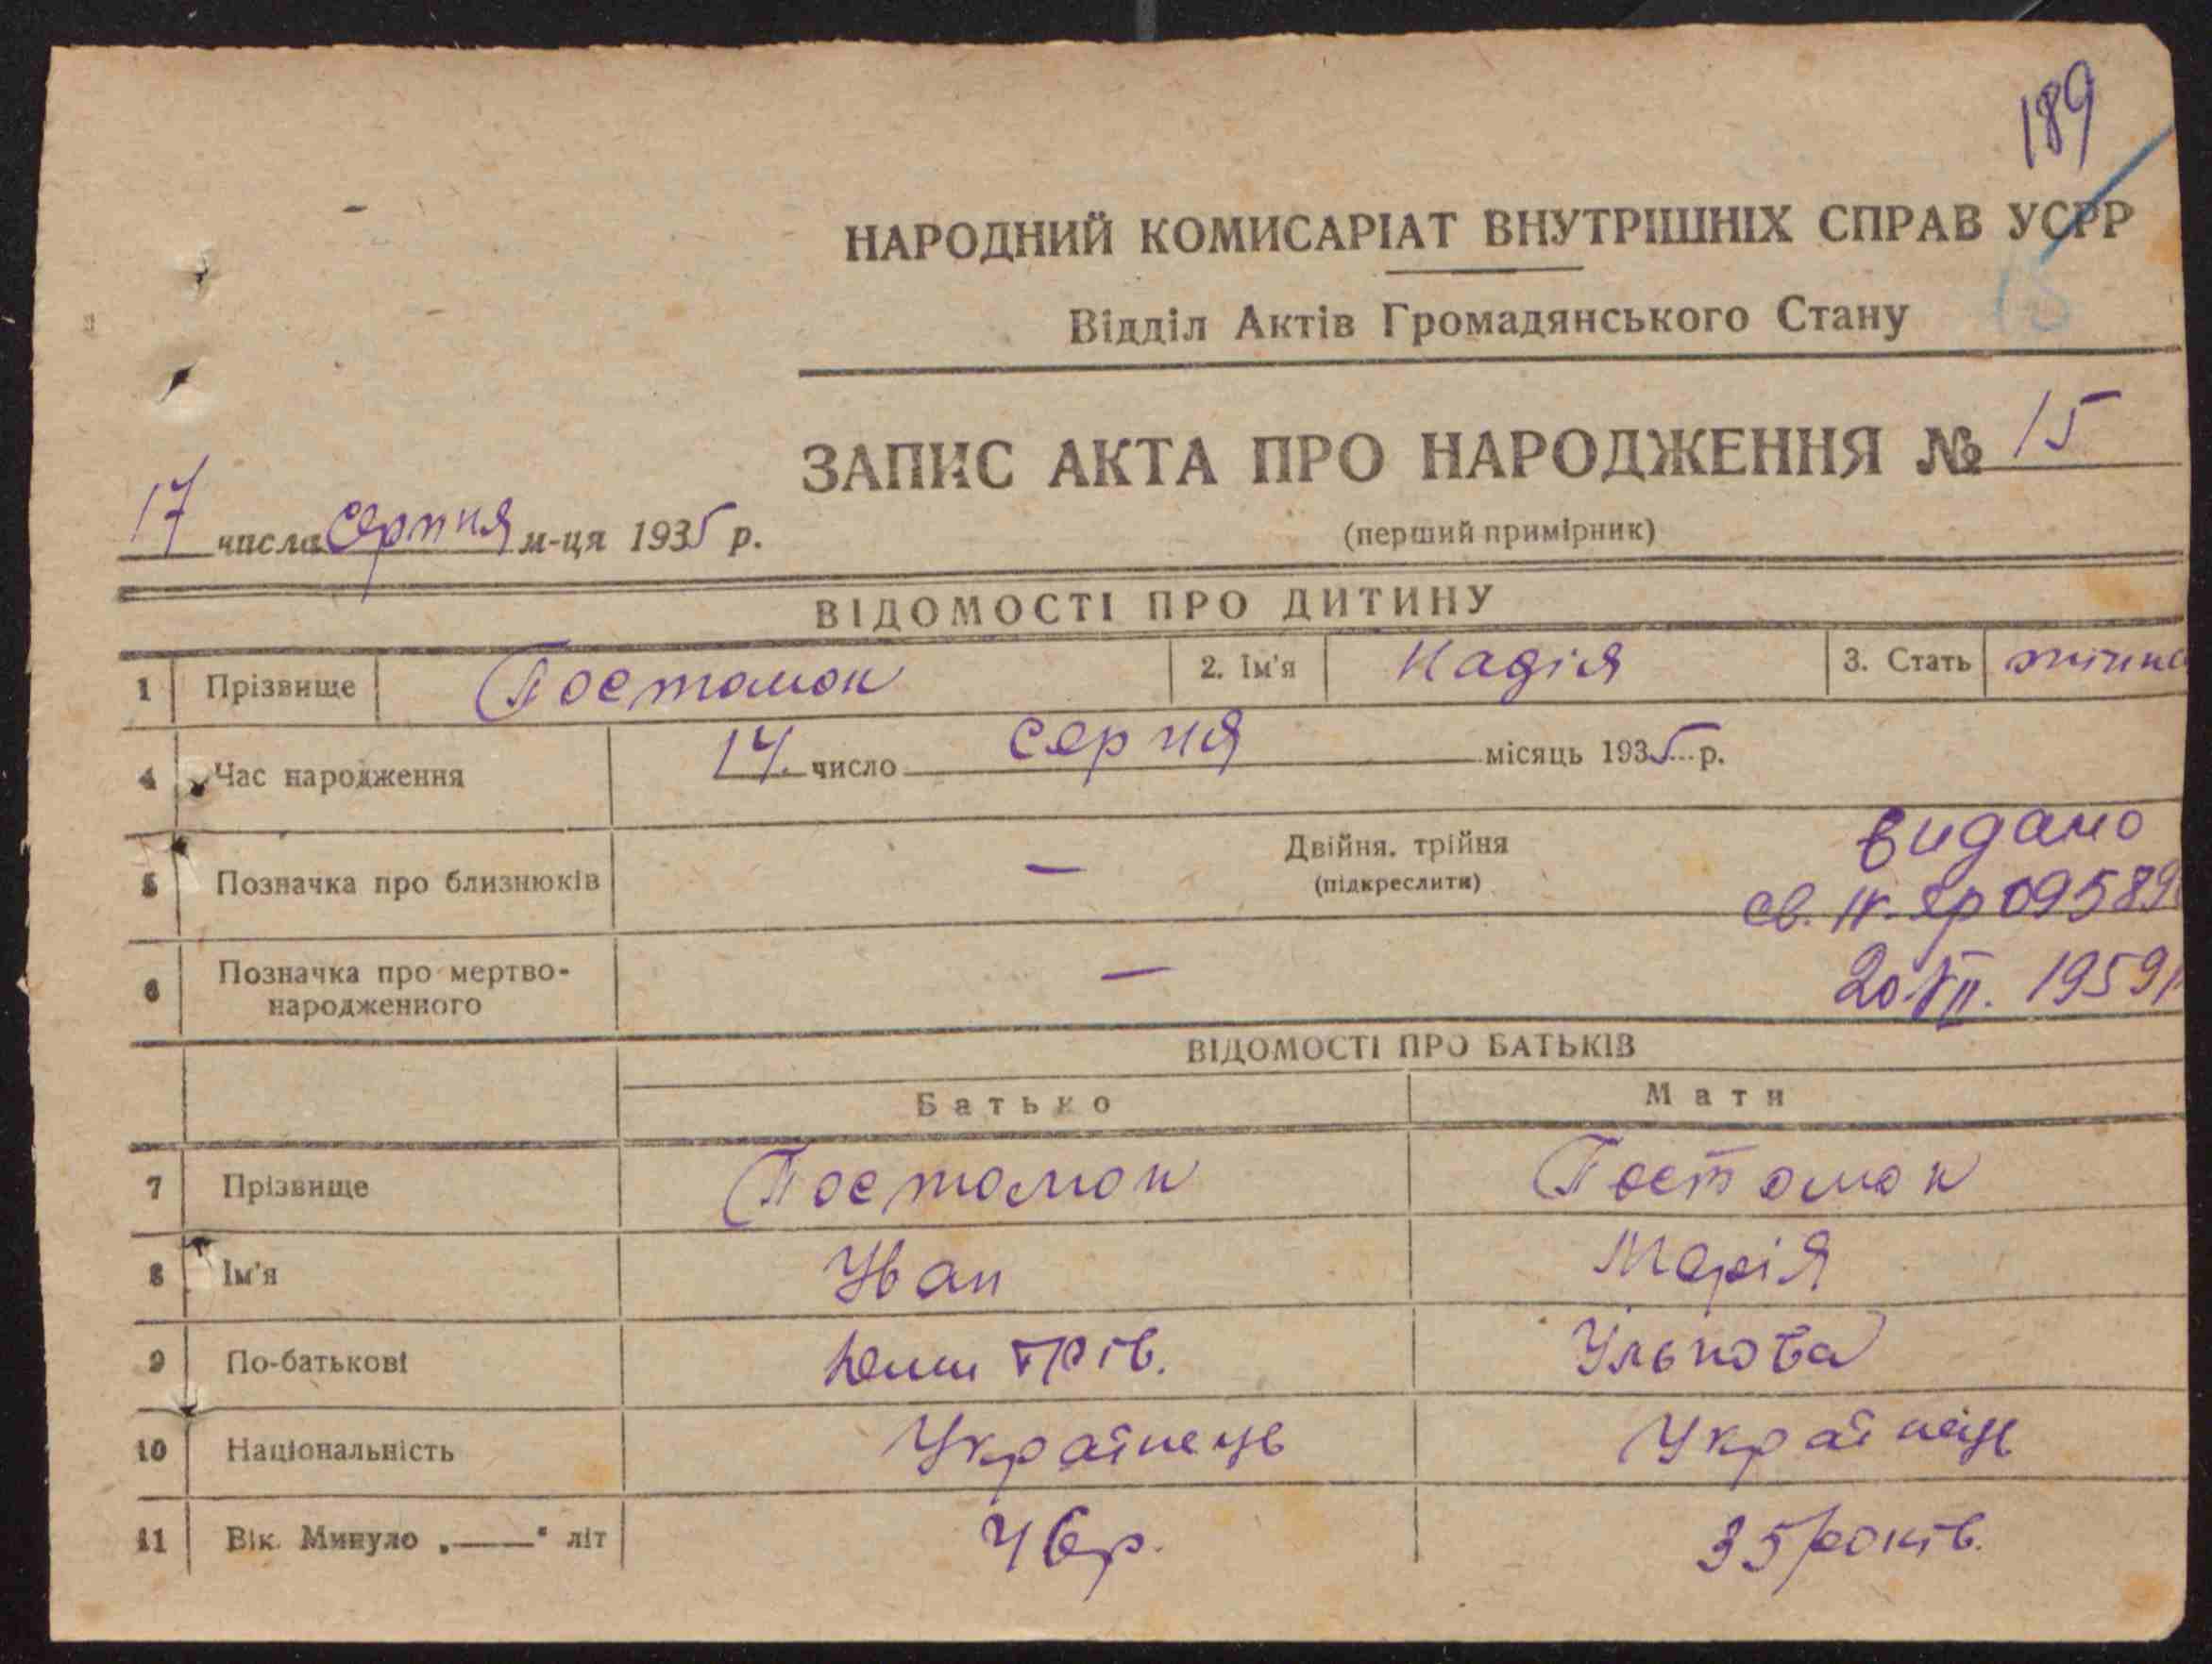 189
НАРОДНИЙ КОМИСАРІАТ ВНУТРІШНІХ СПРАВ УСРР
Відділ Актів Громадянського Стану
15
ЗАПИС АКТА ПРО НАРОДЖЕННЯ № 15
(перший примірник)
17 числа серпня м-ця 1935 р.
ВІДОМОСТІ ПРО ДИТИНУ
1 Прізвище Постомок 2. Ім'я Надія 3. Стать жіноч
4 Час народження 14. число серня місяць 1935 р.
5 Позначка про близнюків — Двійня, трійня
(підкреслити)
видано
св. IV-яр 09589
6 Позначка про мертво-
народженного —
20 VII. 1959
ВІДОМОСТІ ПРО БАТЬКІВ
Батько Мати
7 Прізвище Постомок Постомок
8 Ім'я Іван Марія
9 По-батькові Дмитрів. Улькова
10 Національність Українець Українець
11 Вік. Минуло „——" літ 46р. 35років.